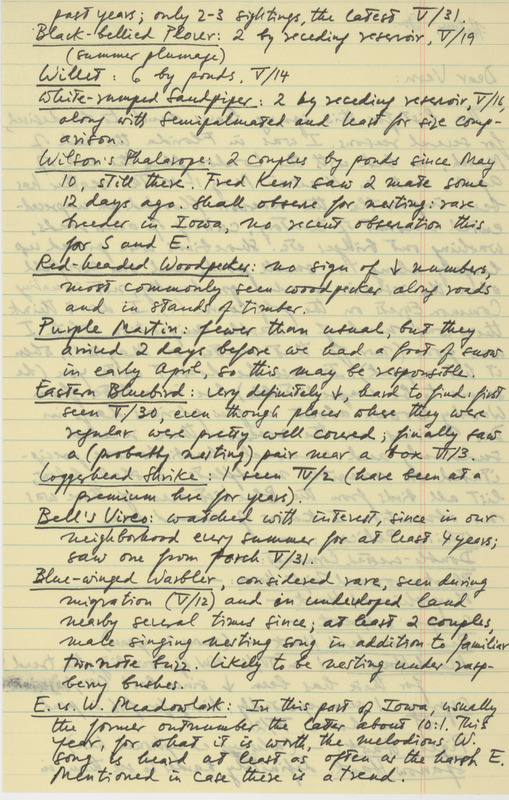 past years; only 2-3 sightings, the latest V/31.
Black-bellied Plover: 2 by receding reservoir, V/19
(summer plumage)
Willet: 6 by ponds, V/14
White-rumped Sandpiper: 2 by receding reservoir, V/16,
along with semipalmated and least for size comp-
arison.
Wilson's Phalarope: 2 couples by ponds since May
10, still there. Fred Kent saw 2 mate some
12 days ago. Shall observe for nesting: rare
breeder in Iowa, no recent observation this
far S and E.
Red-headed Woodpecker: no sign of ↓ numbers,
most commonly seen woodpecker along roads
and in stands of timber.
Purple Martin: fewer than usual, but they
arrived 2 days before we had a foot of snow
in early April, so this may be responsible.
Eastern Bluebird: very definitely ↓, hard to find: first
seen V/30, even though places where they were
regular were pretty well covered; finally saw
a (probably nesting) pair near a box VI/3.
Loggerhead Shrike: 1 seen IV/2 (have been at a
premium here for years).
Bell's Vireo: watched with interest, since in our
neighborhood every summer for at least 4 years;
saw one from porch V/31.
Blue-winged Warbler, considered rare, seen during
migration (V/12) and in undevloped land
nearby several times since; at least 2 couples,
male singing nesting song in addition to familiar
two-note buzz. Likely to be nesting under rasp-
berry bushes.
E. vs. W. Meadowlark: In this part of Iowa, usually
the former outnumber the latter about 10:1. This
year, for what it is worth, the melodious W.
song is heard at least as often as the harsh E.
Mentioned in case there is a trend.